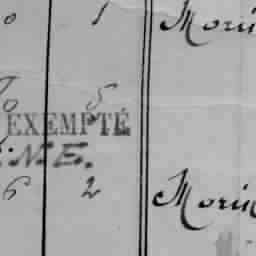 0 1 Mori
5
EXEMPTÉ
N.E.
6 2 Morin